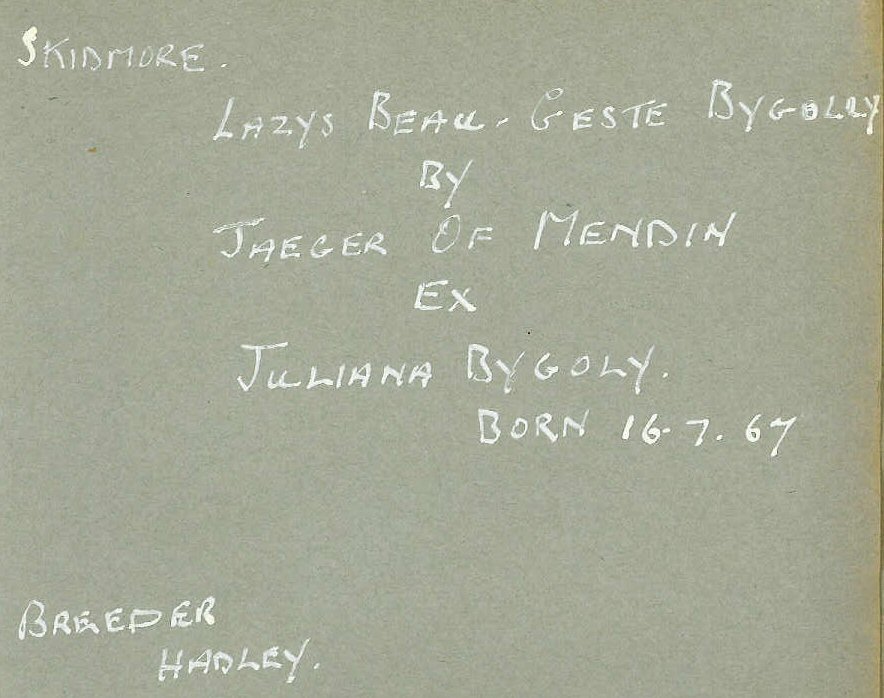 SKIDMORE.
LAZYS BEAU-GESTE BYGOLLY
BY
JAEGER OF MENDIN
EX
JULIANA BYGOLY.
BORN 16.7.67
BREEDER
HADLEY.